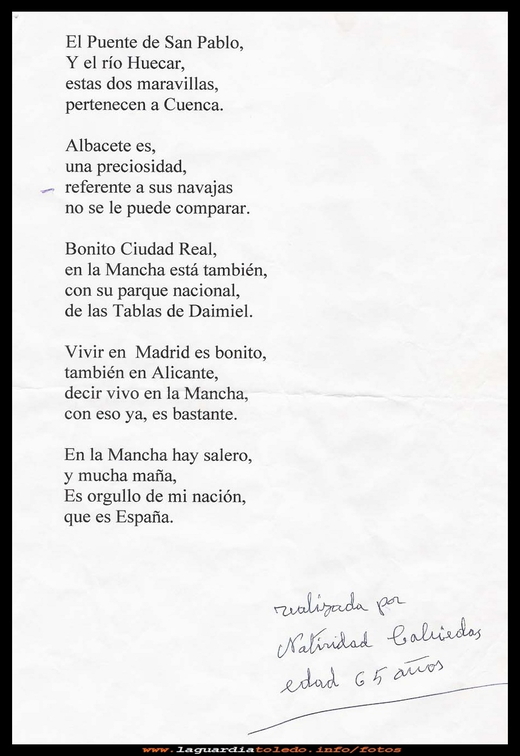 El Puente de San Pablo,
Y el río Huecar,
estas dos maravillas,
pertenecen a Cuenca.

Albacete es,
una preciosidad,
referente a sus navajas
no se le puede comparar.

Bonito Ciudad Real,
en la Mancha está también,
con su parque nacional,
de las Tablas de Daimiel.

Vivir en  Madrid es bonito,
también en Alicante,
decir vivo en la Mancha,
con eso ya, es bastante.

En la Mancha hay salero,
y mucha maña,
Es orgullo de mi nación,
que es España.

realizada por
Natividad Cabiedas
edad 65 años
www.laguardiatoledo.info/fotos